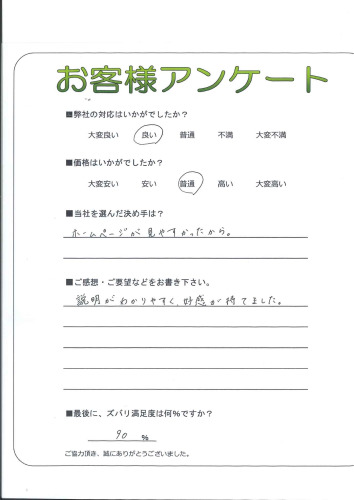 お客様アンケート
■弊社の対応はいかがでしたか?
大変良い 良い 普通 不満 大変不満
■価格はいかがでしたか?
大変安い 安い 普通 高い 大変高い
■当社を選んだ決め手は?
ホームページが見やすかったから。
■ご感想・ご要望などをお書き下さい。
説明がわかりやすく、好感が持てました。
■最後に、ズバリ満足度は何%ですか?
90 %
ご協力頂き、誠にありがとうございました。